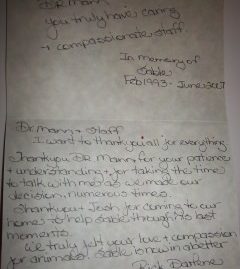 DR Mann
you truly have caring
+ compassionate staff.
In memory of
Sable
Feb 1993 - June 2007
Dr. Mann + Staff
I want to thank you all for everything
Thank you DR Mann, for your patience
+ understanding + for taking the time
to talk with me as we made our
decision, numerous times.
Thank you Josh, for coming to our
home to help Sable through its last
moments.
We truly felt your love + compassion
for animals. Sable is now in a better
Rick